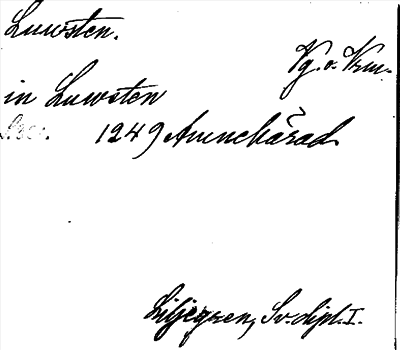 Luwsten.
Vg. o. Vrm.
in Luwsten
1249 Amnehärad
Liljegren, Sv. dipl. I.